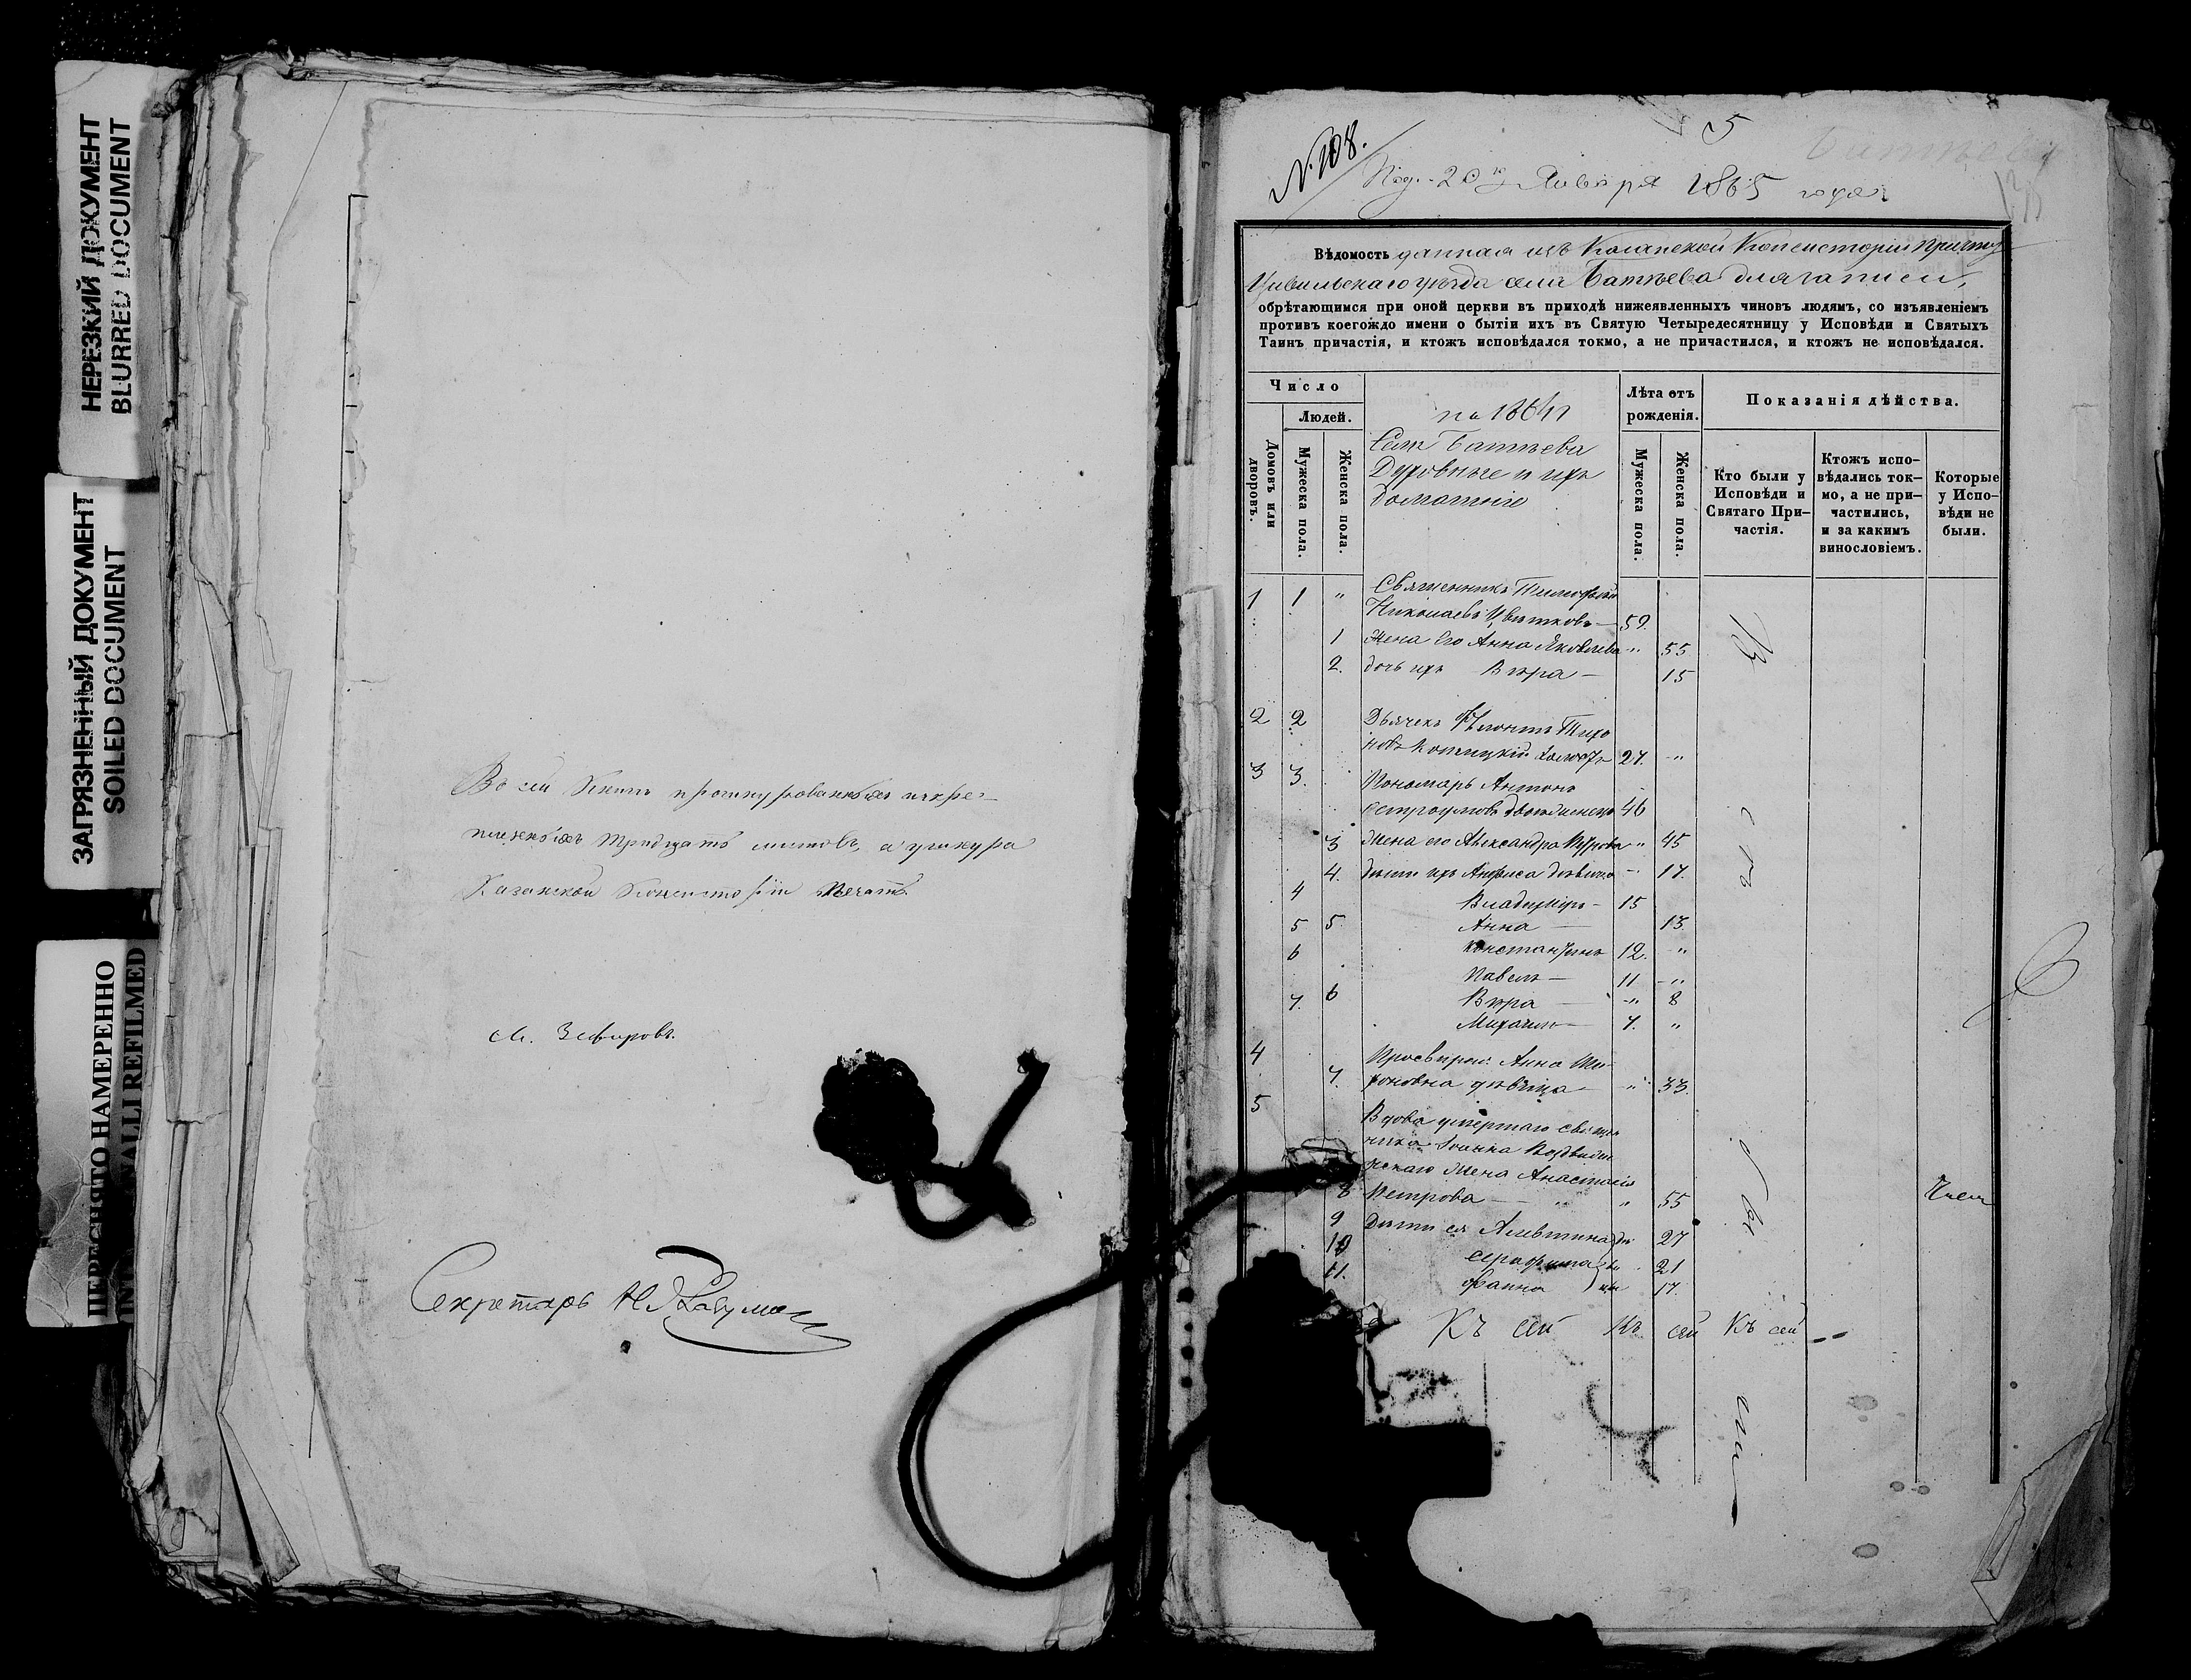 НЕРЕЗКИЙ ДОКУМЕНТ
BLURRED DOCUMENT
ЗАГРЯЗНЕННЫЙ ДОКУМЕНТ
SOILED DOCUMENT
ПЕРЕСНЯТО НАМЕРЕННО
REFILMED
Въ сей Книгѣ прошнурованныхъ и скрѣ-
пленныхъ тридцать листовъ, а у шнура
Казанской Консисторіи печать
М. Зефировъ.
Секретарь
N. 108.
5
Под. 20го Января 1865 года
Вѣдомость данная изъ Казанской Консисторіи причту
Цивильскаго уѣзда села Батѣева для записи,
обрѣтающимся при оной церкви въ приходѣ нижеявленныхъ чиновъ людямъ, со изъявленіемъ
противъ коегождо имени о бытіи ихъ въ Святую Четыредесятницу у Исповѣди и Святыхъ
Таинъ причастія, и ктожъ исповѣдался токмо, а не причастился, и ктожъ не исповѣдался.
Число
Людей.
Домовъ или дворовъ.
Мужеска пола.
Женска пола.
на 1864 г
Села Батѣева
Духовные и ихъ
домашніе
Лѣта отъ рожденія.
Мужеска пола.
Женска пола.
Показанія дѣйства.
Кто были у Исповѣди и Святаго При-частія.
Ктожъ испо-вѣдались ток-мо, а не при-частились, и за какимъ винословіемъ.
Которые у Испо-вѣди не были.
1 1 " Священникъ Тимофей
Николаевъ Цвѣтковъ — 59.
1 Жена его Анна Яковлева " 55
2. дочь ихъ Вѣра — 15
2 2 Дьячекъ Тихо
новъ холостъ 27. "
3 3. Пономарь Антонъ
46
3 Жена его Александра " 45
4. дѣти ихъ Анфиса дѣвица — 17.
4 Владиміръ — 15
5 5 Анна — 13.
6 Константинъ 12. "
Павелъ — 11 "
7. 6 Вѣра — " 8
Михаилъ — 7. "
4 Просвирня Анна Ми-
7. роновна дѣвица — " 33.
5 Вдова умершаго священ
ника Іоанна Воздвижен
скаго жена Анастасія
8 Петрова — " 55
9 Дѣти ея Алевтина дѣ 27
10 Серафима 21
11. Фаина цы 17.
Къ сей Къ сей Къ сей